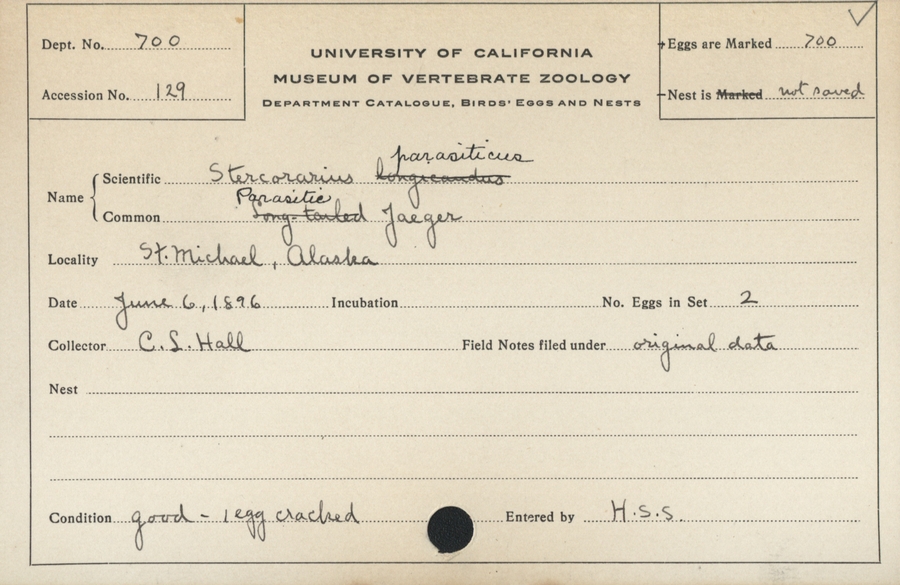 Dept. No. 700
Accession No. 129
UNIVERSITY OF CALIFORNIA
MUSEUM OF VERTEBRATE ZOOLOGY
DEPARTMENT CATALOGUE, BIRDS' EGGS AND NESTS
Eggs are Marked 700
Nest is Marked not saved
parasiticus
Name
Scientific Stercorarius longicaudus
Parasitic
Common Long-tailed Jaeger
Locality St. Michael, Alaska
Date June 6, 1896 Incubation No. Eggs in Set 2
Collector C. L. Hall Field Notes filed under original data
Nest
Condition good - 1 egg cracked Entered by H.S.S.